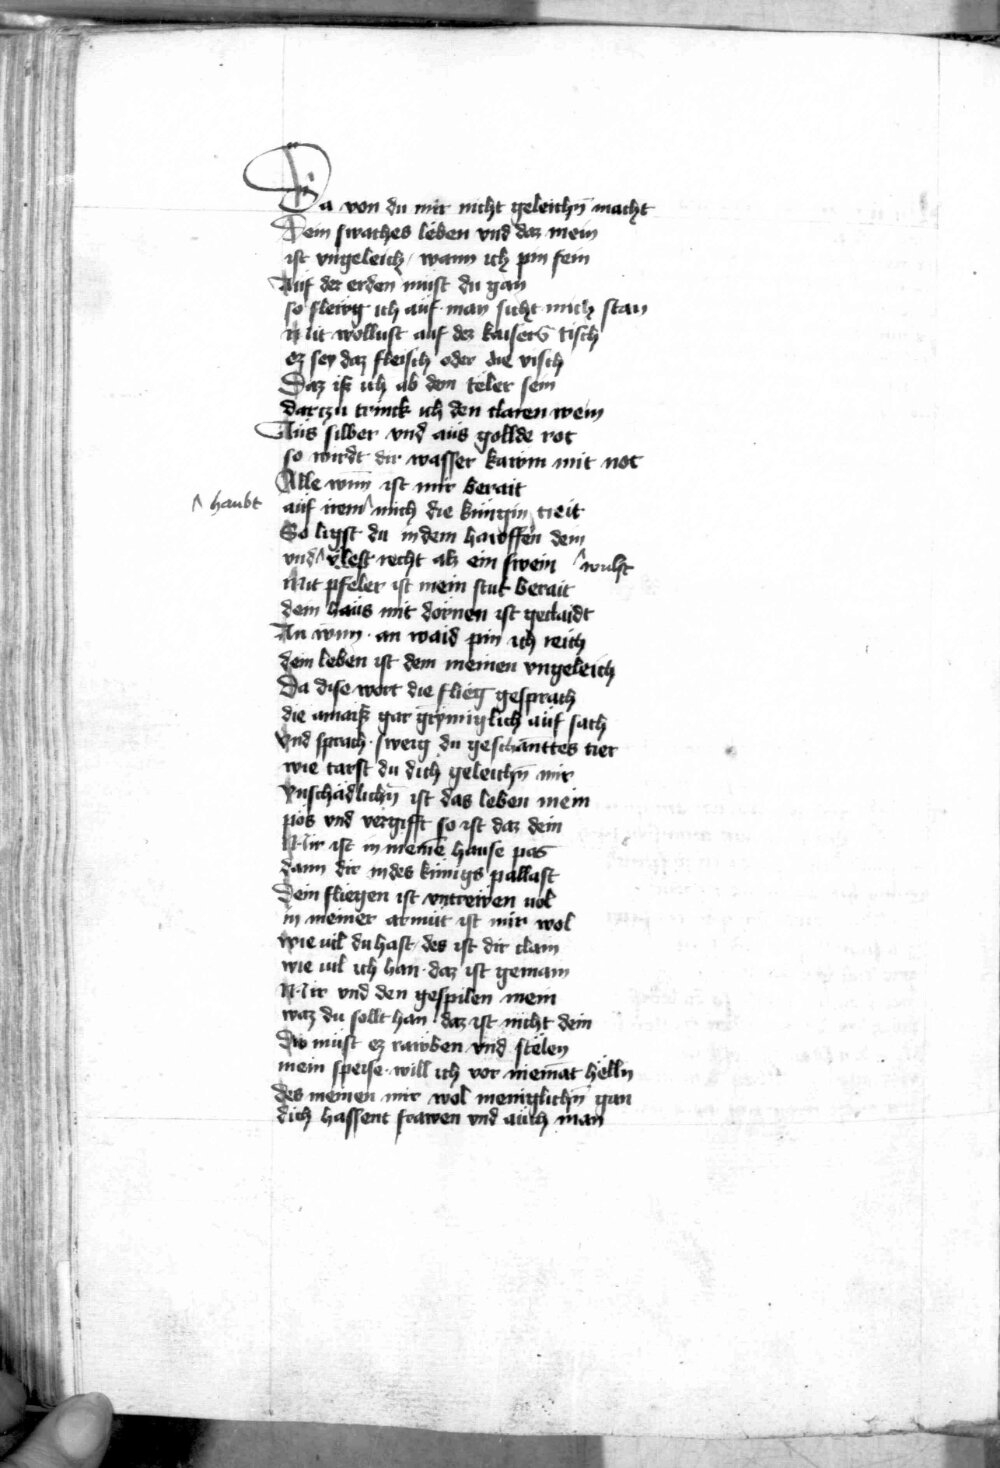 Da von du mir nicht geleichn̄ macht
Dein swaches leben vnd daz mein
ist vngeleich / wann ich pin fein
Auf der erden müst du gan
so fleug ich auf · man sicht mich stan
Mit wollust auf dez kaisers tisch
ez sey daz fleisch oder die visch
Daz iß ich ab dem teler sein
dartzu trinck ich den claren wein
Aüs silber vnd aüs gollde rot
so wirdt dir wasser kawm mit not
Alle wun̄ ist mir berait
^ haubt auf irem ^ mich die künigin treit
So ligst du in dem hawffen dein
vnd ^ vlest recht alz ein swein ^ wulst
Mit pfeler ist mein stul berait
dein haüs mit dornen ist geclaidt
An wun̄ · an waid pin ich reich
dein leben ist dem meinen vngeleich
Da dise wort die flieg gesprach
die amaiß gar grymiglich aüf sach
vnd sprach · sweig du geschanttes tier
wie tarst du dich geleichn̄ mir
vnschädlichn̄ ist das leben mein
pös vnd vergifft so ist daz dein
Mir ist in meinē hause pas
dann dir in des künigs pallast
Dein fliegen ist vntrewen vol
in meiner armüt ist mir wol
wie vil du hast / des ist dir clain
wie vil ich han · daz ist gemain
Mir vnd den gespilen mein
waz du sollt han · daz ist nicht dein
Du müst ez rawben vnd stelen
mein speise · will ich vor niemāt helln
des meinen mir wol meniglichn̄ gan
dich hassent frawen vnd auch man